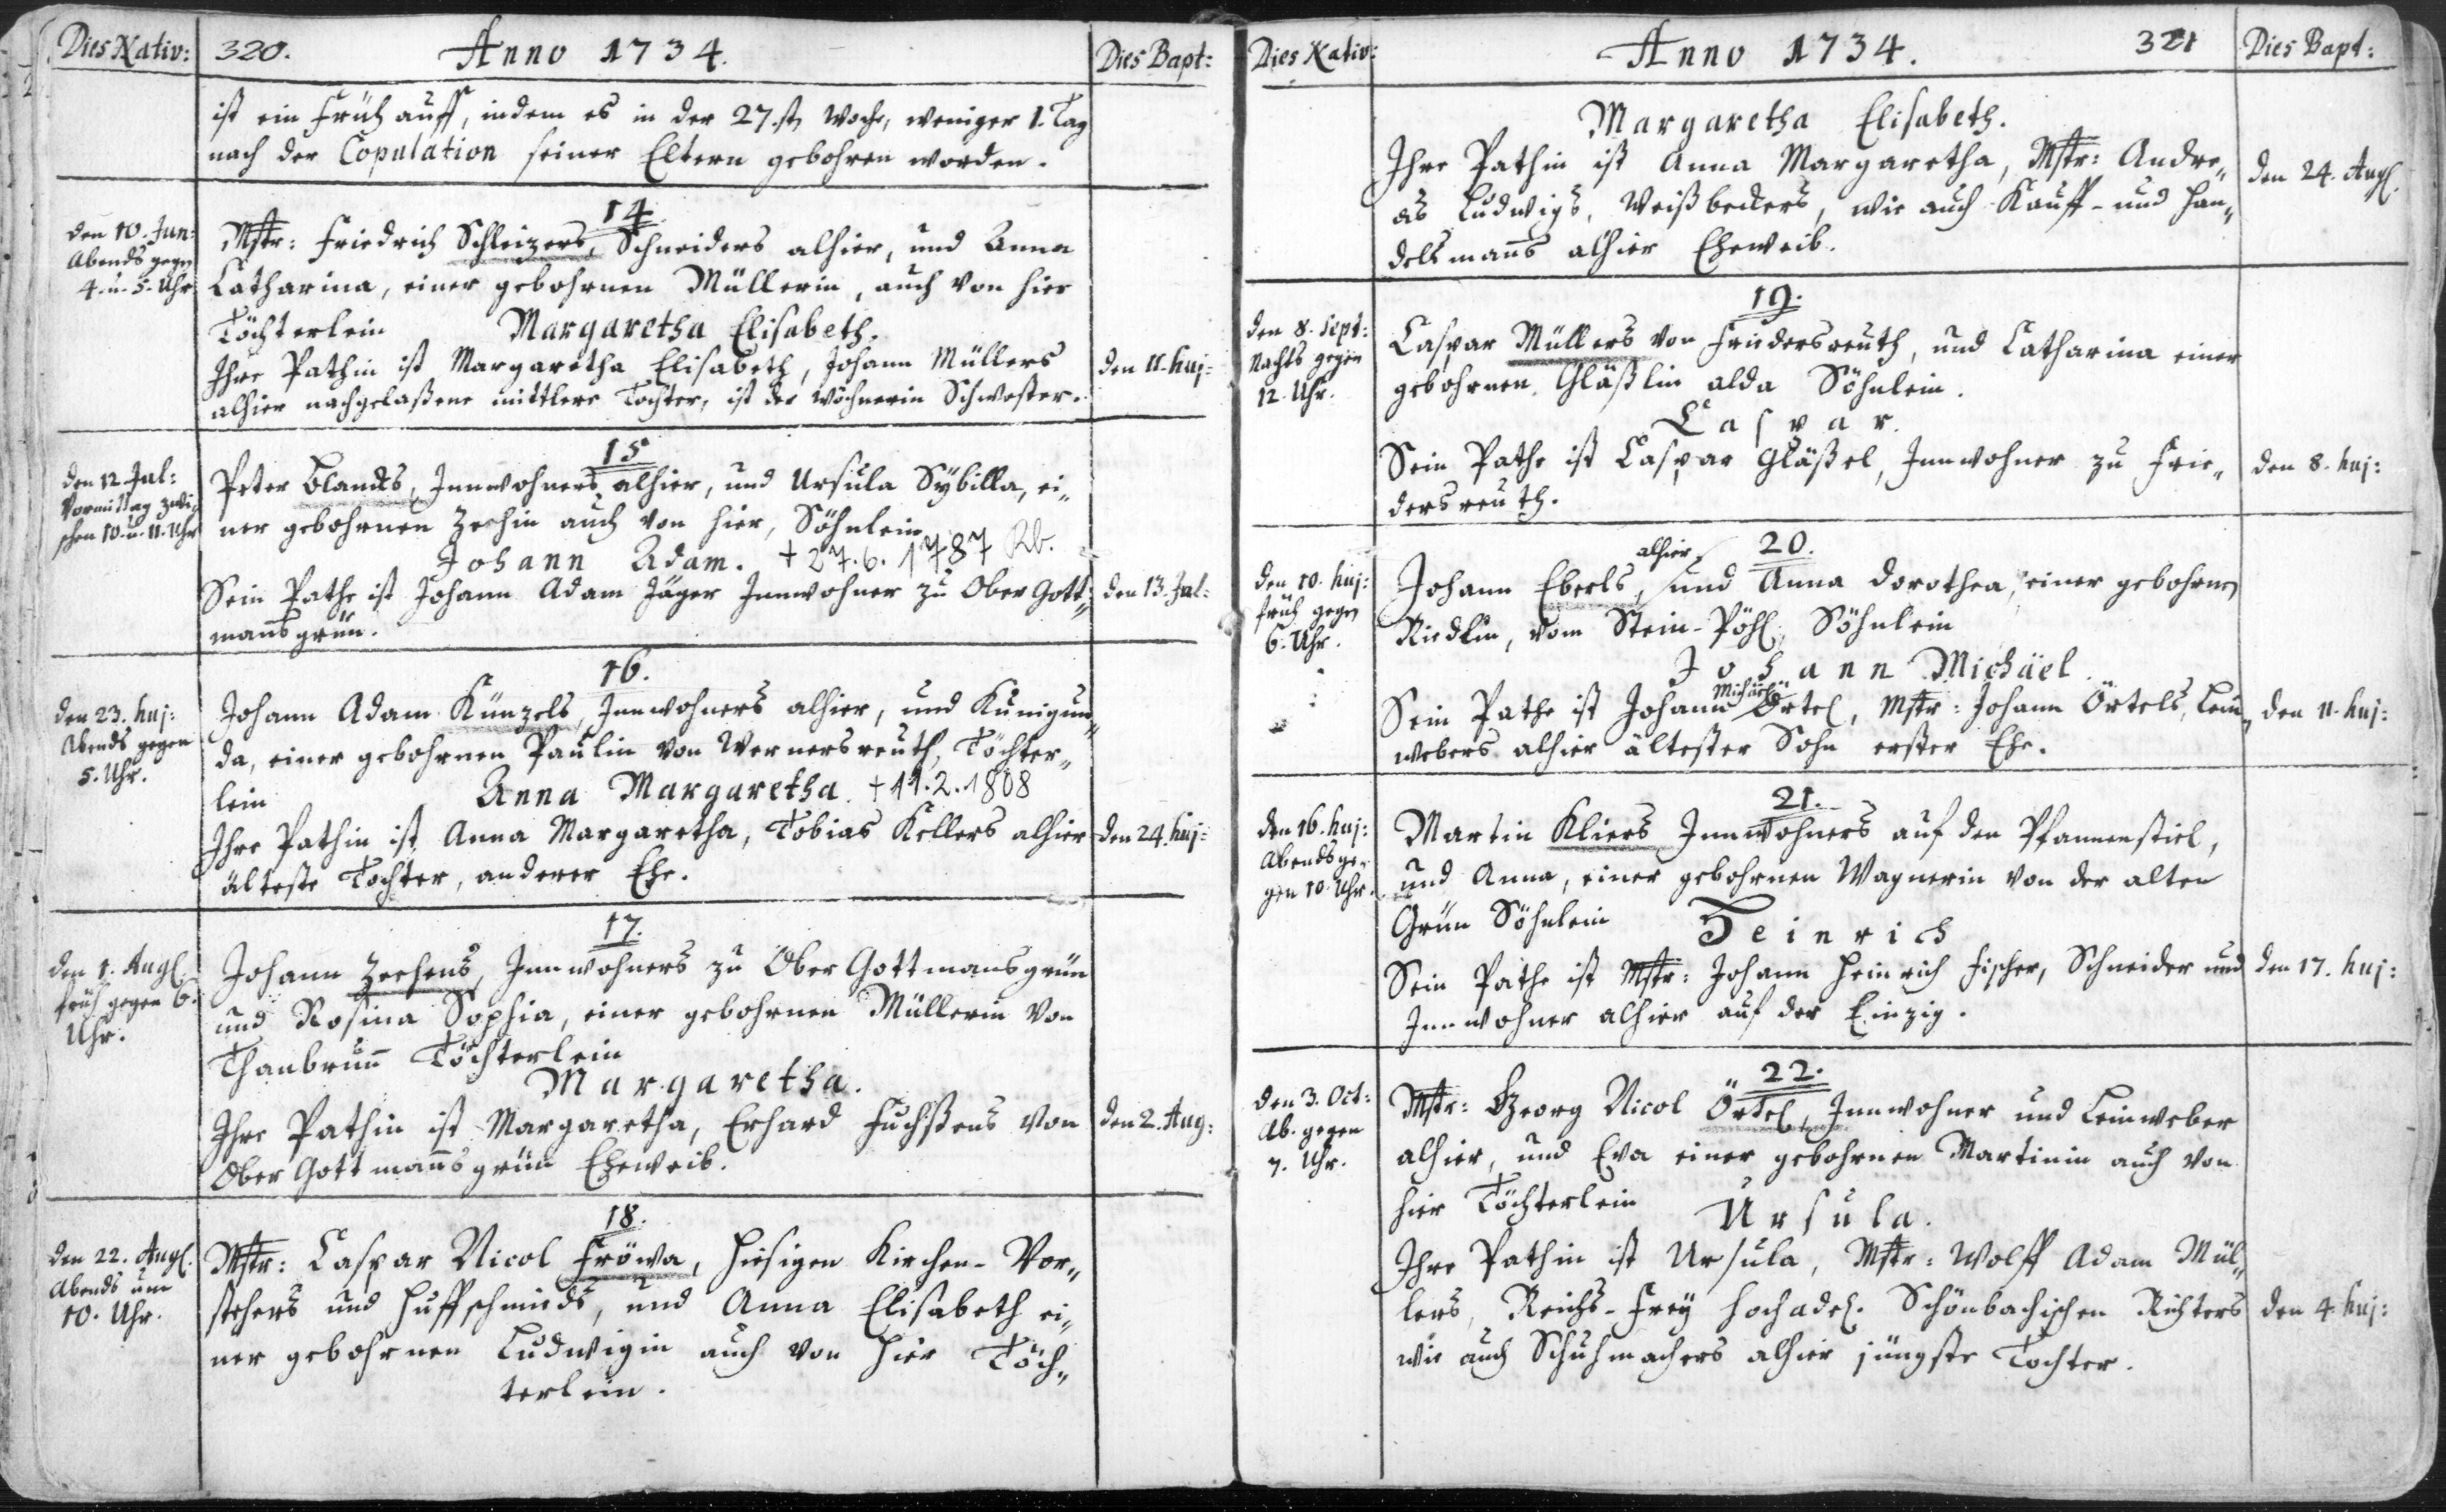 Dies Nativ: 320. Anno 1734. Dies Bapt:
ist ein Früh auff, indem es in der 27.st Woche, weniger 1. Tag
nach der Copulation seiner Eltern gebohren worden.
14.
den 10. Jun:
Abends gegen
4. u. 5. Uhr
Mstr: Friedrich Schleizers, Schneiders alhier, und Anna
Catharina, einer gebohrnen Müllerin, auch von hier
Töchterlein Margaretha Elisabeth.
Ihre Pathin ist Margaretha Elisabeth, Johann Müllers
alhier nachgelaßene mittlere Tochter, ist der Wöchnerin Schwester.
den 11. huj:
15
den 12 Jul:
Vormittag zwi
schen 10. u. 11. Uhr
Peter Blancks, Innwohners alhier, und Ursula Sybilla, ei„
ner gebohrnen Zechin auch von hier, Söhnlein
Johann Adam. † 27.6.1787 Rb.
Sein Pathe ist Johann Adam Jäger Innwohner zu Ober Gott„
mannsgrün.
den 13. Jul:
16.
den 23. huj:
Abends gegen
5. Uhr.
Johann Adam Künzels, Innwohners alhier, und Kunigun„
da, einer gebohrnen Paulin von Wernersreuth, Töchter„
lein Anna Margaretha. † 11.2.1808
Ihre Pathin ist Anna Margaretha, Tobias Kellers alhier
älteste Tochter, anderer Ehe.
den 24. huj:
17.
den 1. Aug.
früh gegen 6.
Uhr.
Johann Zechens, Innwohners zu Ober Gottmansgrün
und Rosina Sophia, einer gebohrnen Müllerin von
Thanbrunn Töchterlein
Margaretha.
Ihre Pathin ist Margaretha, Erhard Fuchßens von
Ober Gottmannsgrün Eheweib.
den 2. Aug:
18.
den 22. Aug.
Abends um
10. Uhr.
Mstr: Caspar Nicol Fröwa, hiesigen Kirchen-Vor„
stehers und Huffschmieds, und Anna Elisabeth ei„
ner gebohrnen Ludwigin auch von hier Töch„
terlein.
Dies Nativ: Anno 1734. 321 Dies Bapt:
Margaretha Elisabeth.
Ihre Pathin ist Anna Margaretha, Mstr: Andre„
as Ludwigs, Weißbeckers, wie auch Kauff- und Han„
delsmanns alhier Eheweib.
den 24. Aug.
19.
den 8. Sept:
Nachts gegen
12. Uhr.
Caspar Müllers von Friedersreuth, und Catharina einer
gebohrnen Gläßlin alda Söhnlein.
Caspar.
Sein Pathe ist Caspar Gläßel, Innwohner zu Frie„
dersreuth.
den 8. huj:
20.
den 10. huj:
früh gegen
6. Uhr.
alhier
Johann Eberls, und Anna Dorothea, einer gebohrnen
Riedlin, vom Stein-Pöhl, Söhnlein
Johann Michäel.
Michäel
Sein Pathe ist Johann Örtel, Mstr: Johann Örtels, Lein„
webers alhier ältester Sohn erster Ehe.
den 11. huj:
21.
den 16. huj:
Abends ge„
gen 10. Uhr.
Martin Kliers Innwohners auf den Pfannenstiel,
und Anna, einer gebohrnen Wagnerin von der alten
Grün Söhnlein Heinrich
Sein Pathe ist Mstr: Johann Heinrich Fischer, Schneider und
Innwohner alhier auf der Einzig.
den 17. huj:
22.
den 3. Oct:
Ab. gegen
7. Uhr.
Mstr: Georg Nicol Örtel, Innwohner und Leinweber
alhier, und Eva einer gebohrnen Martinin auch von
hier Töchterlein Ursula.
Ihre Pathin ist Ursula, Mstr: Wolff Adam Mül„
lers, Reichs-Frey Hochadel. Schönbachischen Richters
wie auch Schuhmachers alhier jüngste Tochter.
den 4. huj: